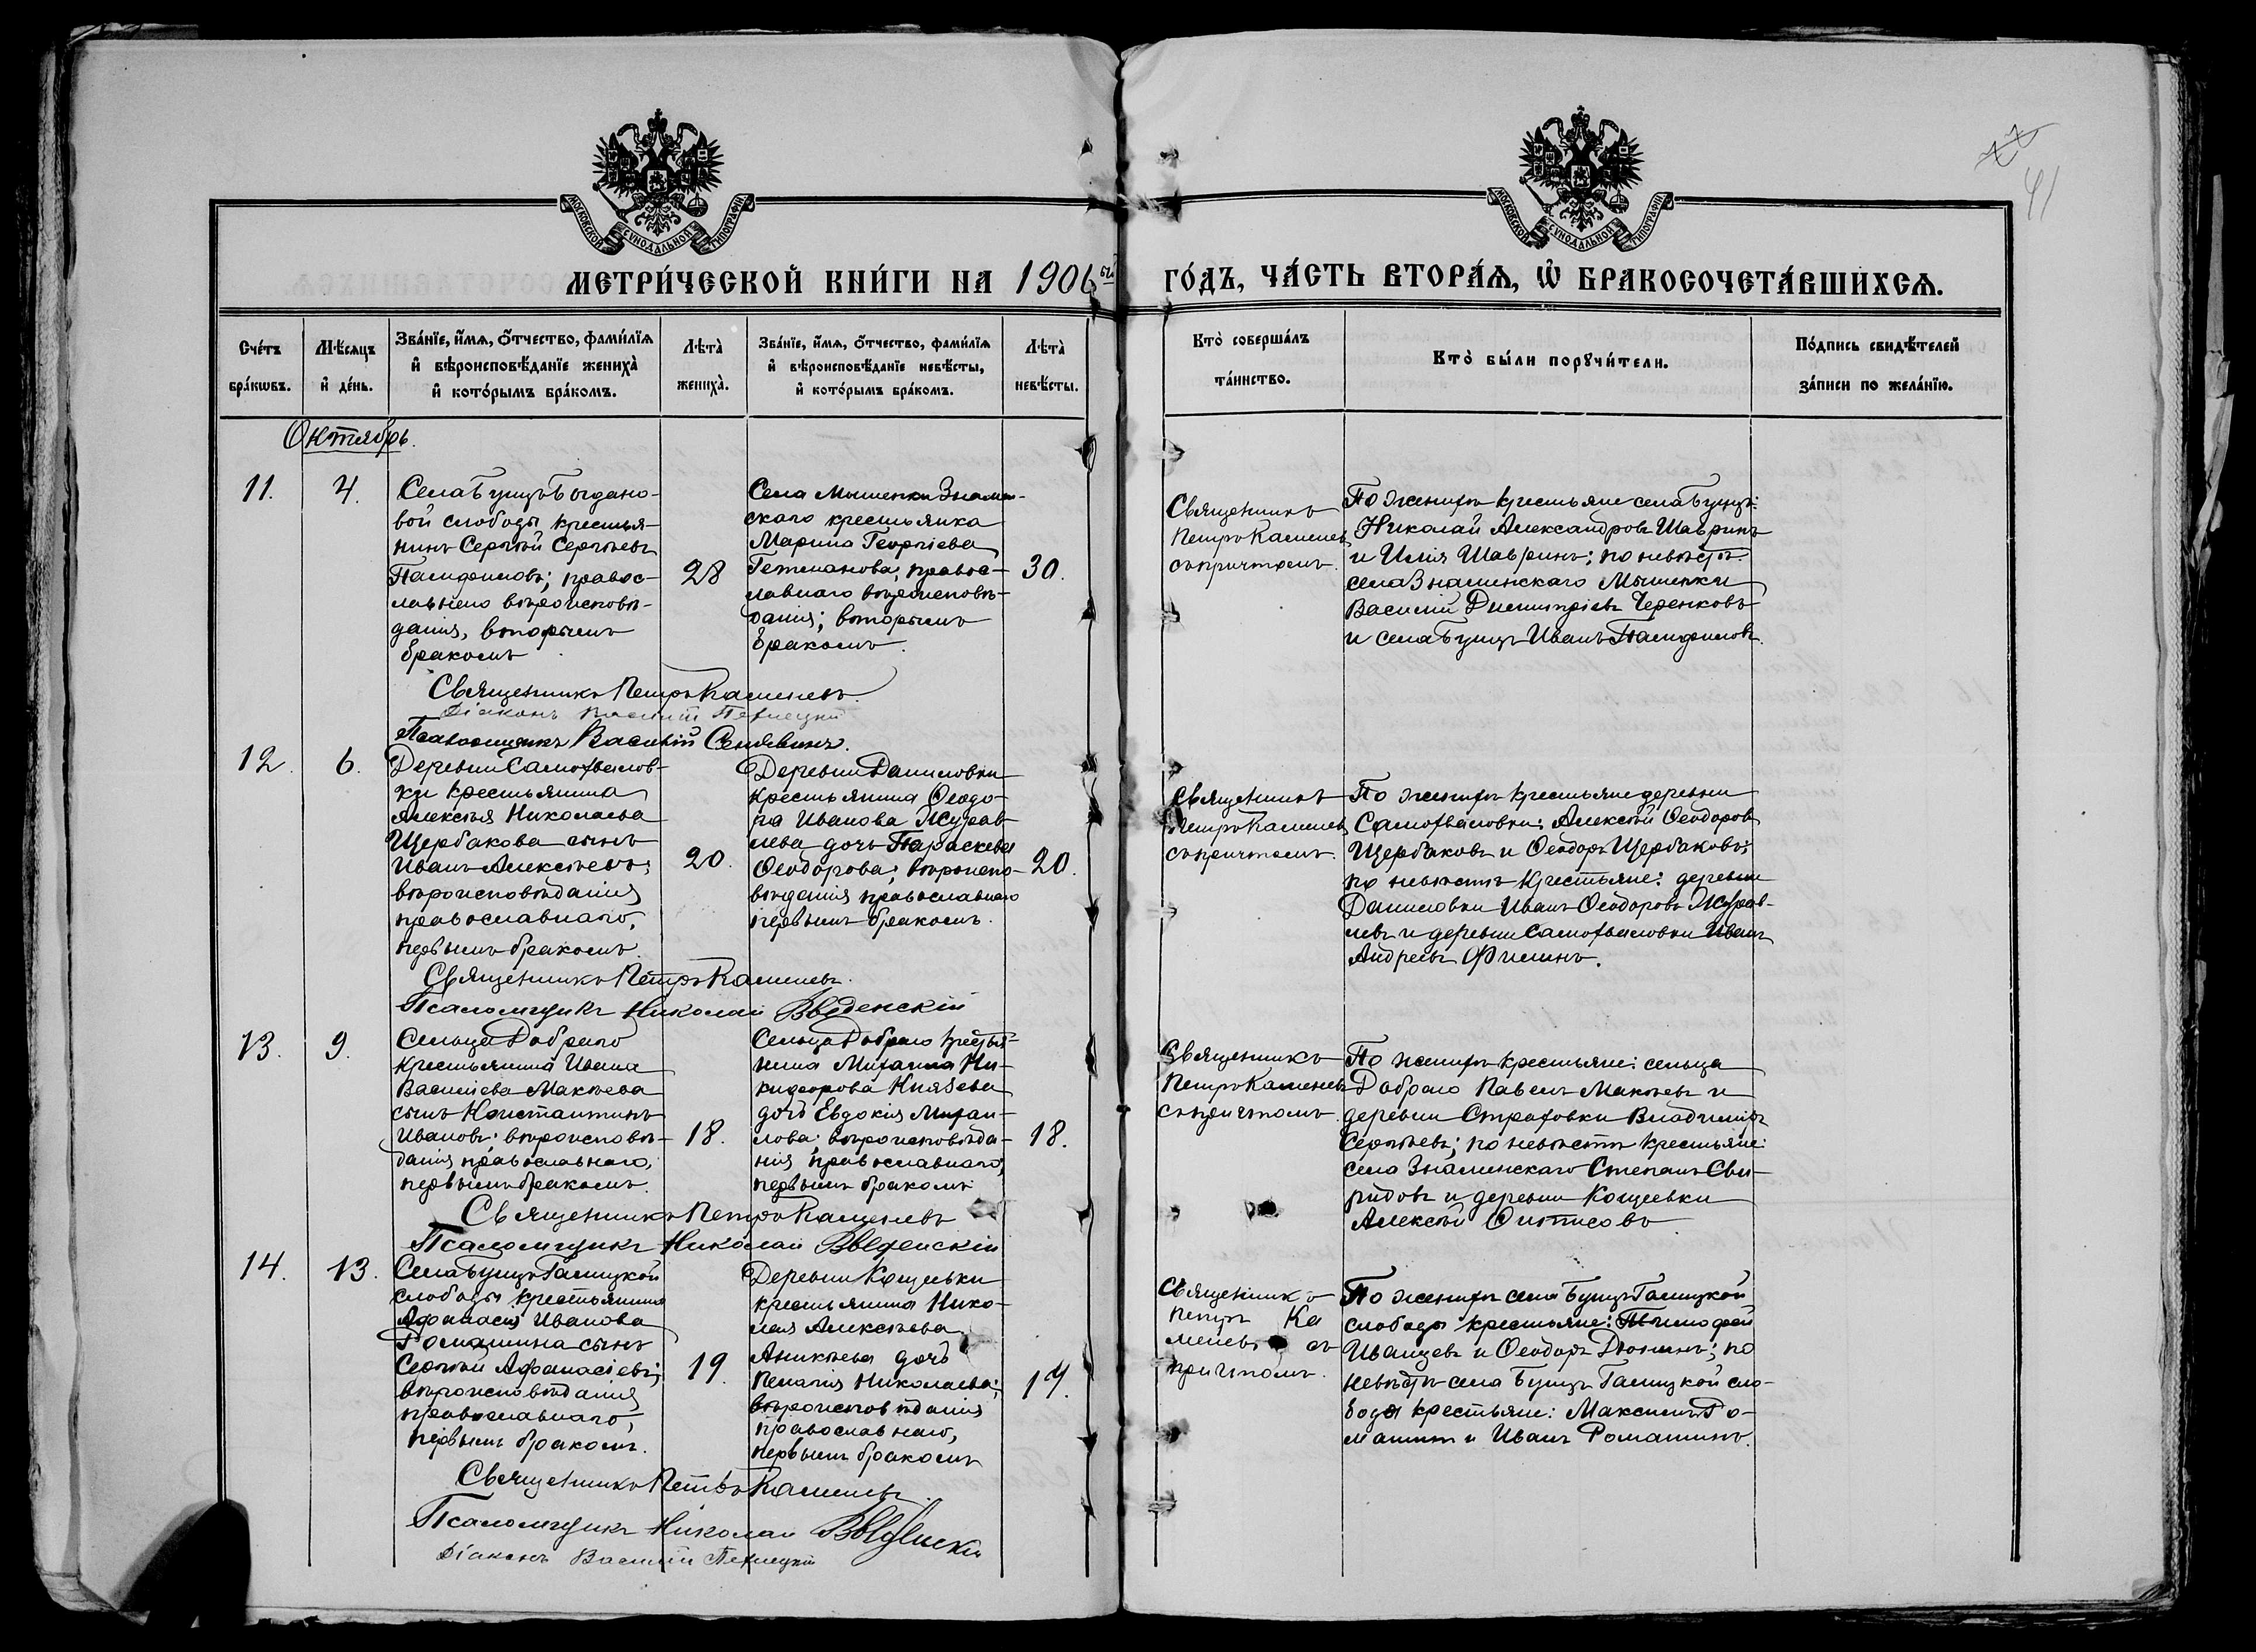 41
МОСКОВСКОЙ СѴНОДАЛЬНОЙ ТИПОГРАФІИ
МОСКОВСКОЙ СѴНОДАЛЬНОЙ ТИПОГРАФІИ
МЕТРИ́ЧЕСКОЙ КНИ́ГИ НА 1906ый ГО́ДЪ, ЧА́СТЬ ВТОРА́Ѧ, Ѿ БРАКОСОЧЕТА́ВШИХСѦ.
Сче́тъ
бра́кѡвъ.
Мѣ́сѧцъ
и҆ де́нь.
Зва́нїе, и҆́мѧ, ѻ҆́тчество, фами́лїѧ
и҆ вѣроисповѣ́данїе жениха̀
и҆ кото́рымъ бра́комъ.
Лѣ́та̀
жениха̀.
Зва́нїе, и҆́мѧ, ѻ҆́тчество, фами́лїѧ
и҆ вѣроисповѣ́данїе невѣ́сты,
и҆ кото́рымъ бра́комъ.
Лѣ́та̀
невѣ́сты.
Кто̀ соверша́лъ
та́инство.
Кто̀ бы́ли порꙋчи́тели.
По́дпись свидѣ́телей
за́писи по жела́нїю.
Октябрь.
11.
4.
Села Бунцъ Богдано-
вой слободы крестья-
нинъ Сергѣй Сергѣевъ
Памфиловъ; правос-
лавнаго вѣроисповѣ-
данія, вторымъ
бракомъ
28
Села Мышенки Знамен-
скаго крестьянка
Марина Георгіева
Гетманова; правос-
лавнаго вѣроисповѣ-
данія; вторымъ
бракомъ.
30.
Священникъ
Петръ Каменевъ
съ причтомъ.
По женихѣ крестьяне села Бунцъ:
Николай Александровъ Шавринъ
и Илія Шавринъ; по невѣстѣ
села Знаменскаго Мышенки
Василій Димитріевъ Черенковъ
и села Бунцъ Иванъ Памфиловъ.
Священникъ Петръ Каменевъ.
Діаконъ Василій
Псаломщикъ Василій Сенявинъ.
12.
6.
Деревни Самохвалов-
ки крестьянина
Алексѣя Николаева
Щербакова сынъ
Иванъ Алексѣевъ;
вѣроисповѣданія
православнаго,
первымъ бракомъ.
20.
Деревни Даниловки
крестьянина Ѳеодо-
ра Иванова Журав-
лева дочь Параскева
Ѳеодорова; вѣроиспо-
вѣданія православнаго
первымъ бракомъ.
20.
Священникъ
Петръ Каменевъ
съ причтомъ.
По женихѣ крестьяне деревни
Самохваловки: Алексѣй Ѳеодоровъ
Щербаковъ и Ѳеодоръ Щербаковъ;
по невѣстѣ крестьяне: деревни
Даниловки Иванъ Ѳеодоровъ Журав-
левъ и деревни Самохваловки Иванъ
Андреевъ Филинъ.
Священникъ Петръ Каменевъ.
Псаломщикъ Николай Введенскій
13.
9.
Сельца Добраго
крестьянина Ивана
Васильева Макѣева
сынъ Константинъ
Ивановъ; вѣроисповѣ-
данія православнаго,
первымъ бракомъ.
18.
Сельца Добраго крестья-
нина Михаила Ни-
кифорова Князева
дочь Евдокія Михаи-
лова; вѣроисповѣда-
нія православнаго,
первымъ бракомъ
18.
Священникъ
Петръ Каменевъ
съ причтомъ.
По женихѣ крестьяне: сельца
Добраго Павелъ Макѣевъ и
деревни Страховки Владиміръ
Сергѣевъ; по невѣстѣ крестьяне:
села Знаменскаго Степанъ Сви-
ридовъ и деревни Кощеевки
Алексѣй
Священникъ Петръ Каменевъ
Псаломщикъ Николай Введенскій
14.
13.
Села Бунцъ Галицкой
слободы крестьянина
Аѳанасія Иванова
Ромашина сынъ
Сергѣй Аѳанасіевъ;
вѣроисповѣданія
православнаго,
первымъ бракомъ.
19.
Деревни Кощеевки
крестьянина Нико-
лая Алексѣева
Аникѣева дочь
Пелагія Николаева;
вѣроисповѣданія
православнаго,
первымъ бракомъ
Священникъ
Петръ Ка
меневъ съ
причтомъ.
По женихѣ села Бунцъ Галицкой
слободы крестьяне: Тимофей
Иванцевъ и Ѳеодоръ Дюнинъ; по
невѣстѣ села Бунцъ Галицкой сло-
боды крестьяне: Максимъ Ро-
машинъ и Иванъ Ромашинъ.
Священникъ Петръ Каменевъ.
Псаломщикъ Николай Введенскій
Діаконъ Василій